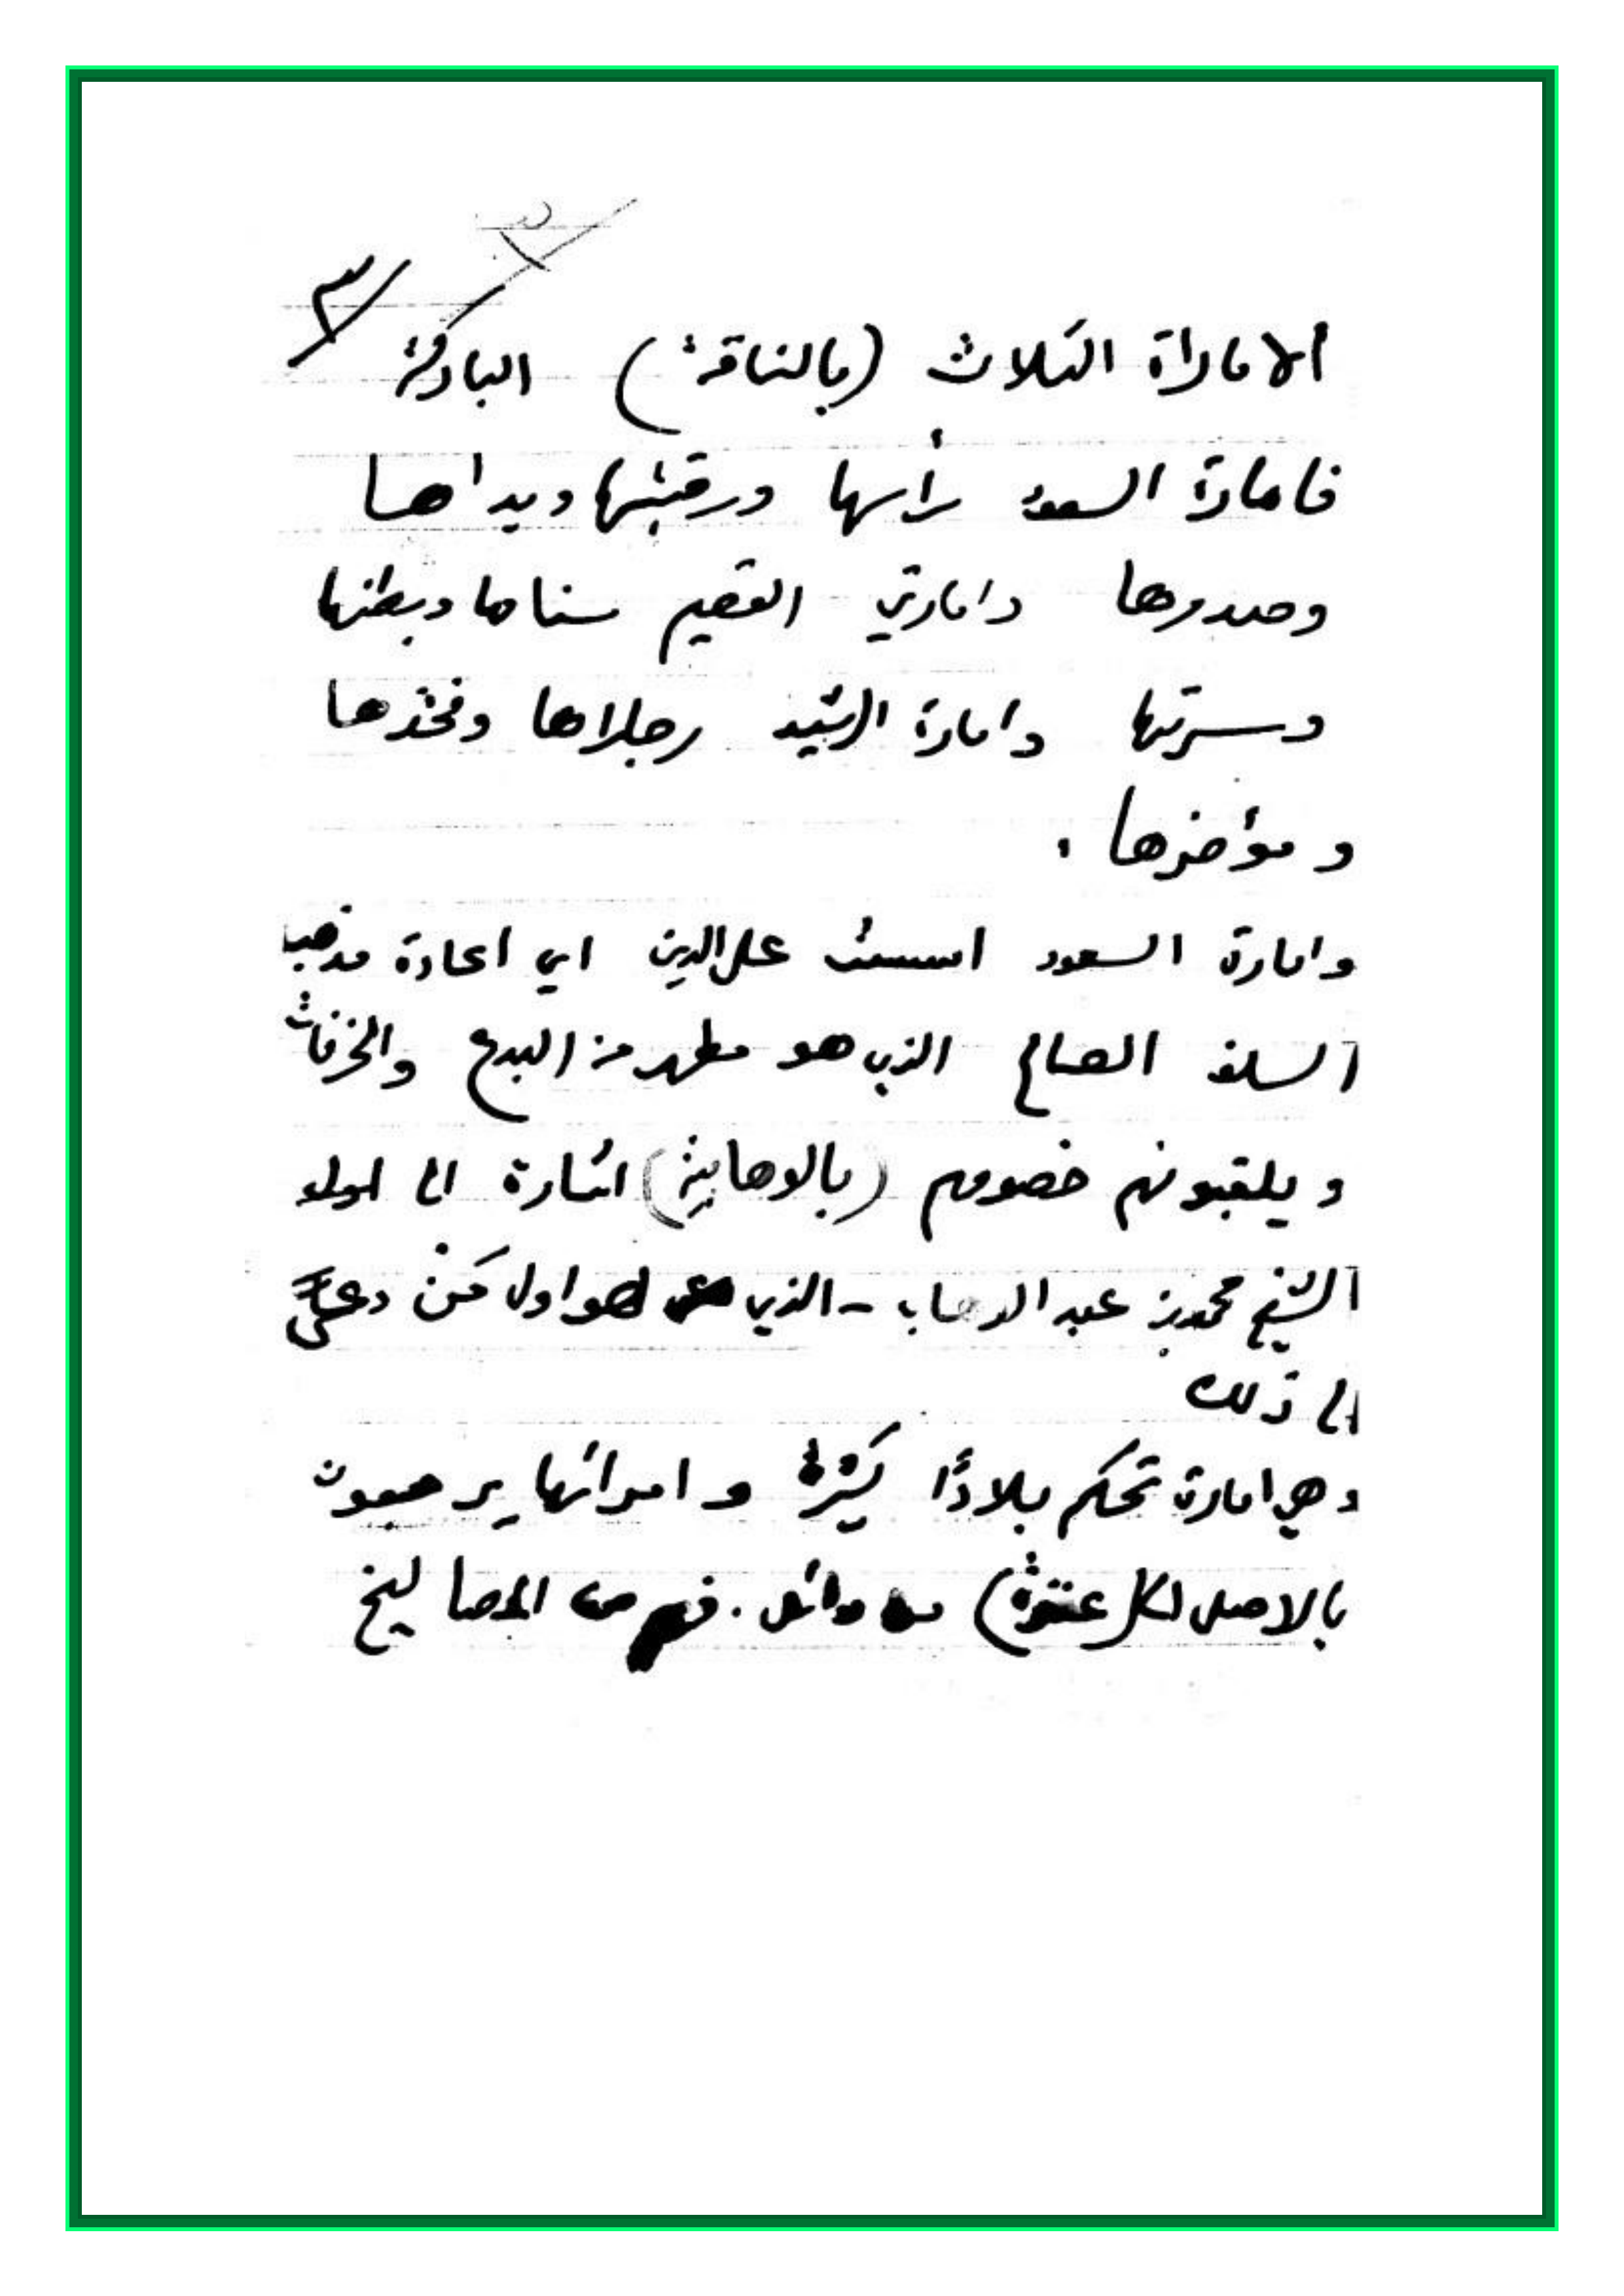 ٣
الاماراة الثلاث (بالناقة) الباركة
فامارة السعود رأسها ورقبتها ويداها
وصدورها وامارتي القصيم سنامها وبطنها
وسرتها وامارة الرشيد رجلاها وفخذها
و مؤخرها .
وامارة السعود اسست على الدين اي اعادة مذهب
السلف الصالح الذي هو مطهر من البدع والخرفات
و يلقبونهم خصومهم (بالوهابية) اشارة الى
الشيخ محمد بن عبد الوهاب - الذي هو اول من دعى
الى ذلك
وهي امارة تحكم بلادًا كثيرة و امرائها يرجعون
بالاصل لكل عنزة) من وائل . فهم من المصاليخ